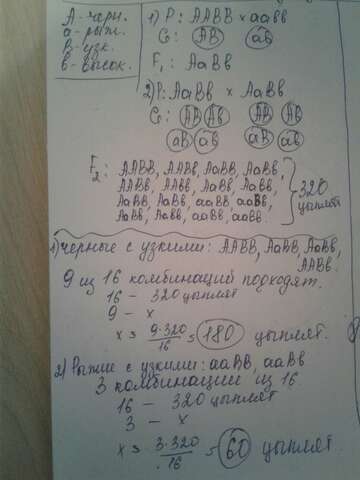 А - черн.
а - рыж.
В - узк.
в - высок.
1) Р: ААВВ × аавв
G: АВ ав
F₁: АаВв
2) Р: АаВв × АаВв
G: АВ Ав АВ Ав
аВ ав аВ ав
F₂: ААВВ, ААВв, АаВВ, АаВв,
ААВв, ААвв, АаВв, Аавв,
АаВВ, АаВв, ааВВ, ааВв,
АаВв, Аавв, ааВв, аавв.
320 цыплят
1) черные с узкими: ААВВ, АаВв, АаВв,
ААВв.
9 из 16 комбинаций подходят.
16 - 320 цыплят
9 - х
х = 9·320/16 = 180 цыплят.
2) Рыжие с узкими: ааВВ, ааВв
3 комбинации из 16
16 - 320 цыплят
3 - х
х = 3·320/16 = 60 цыплят.